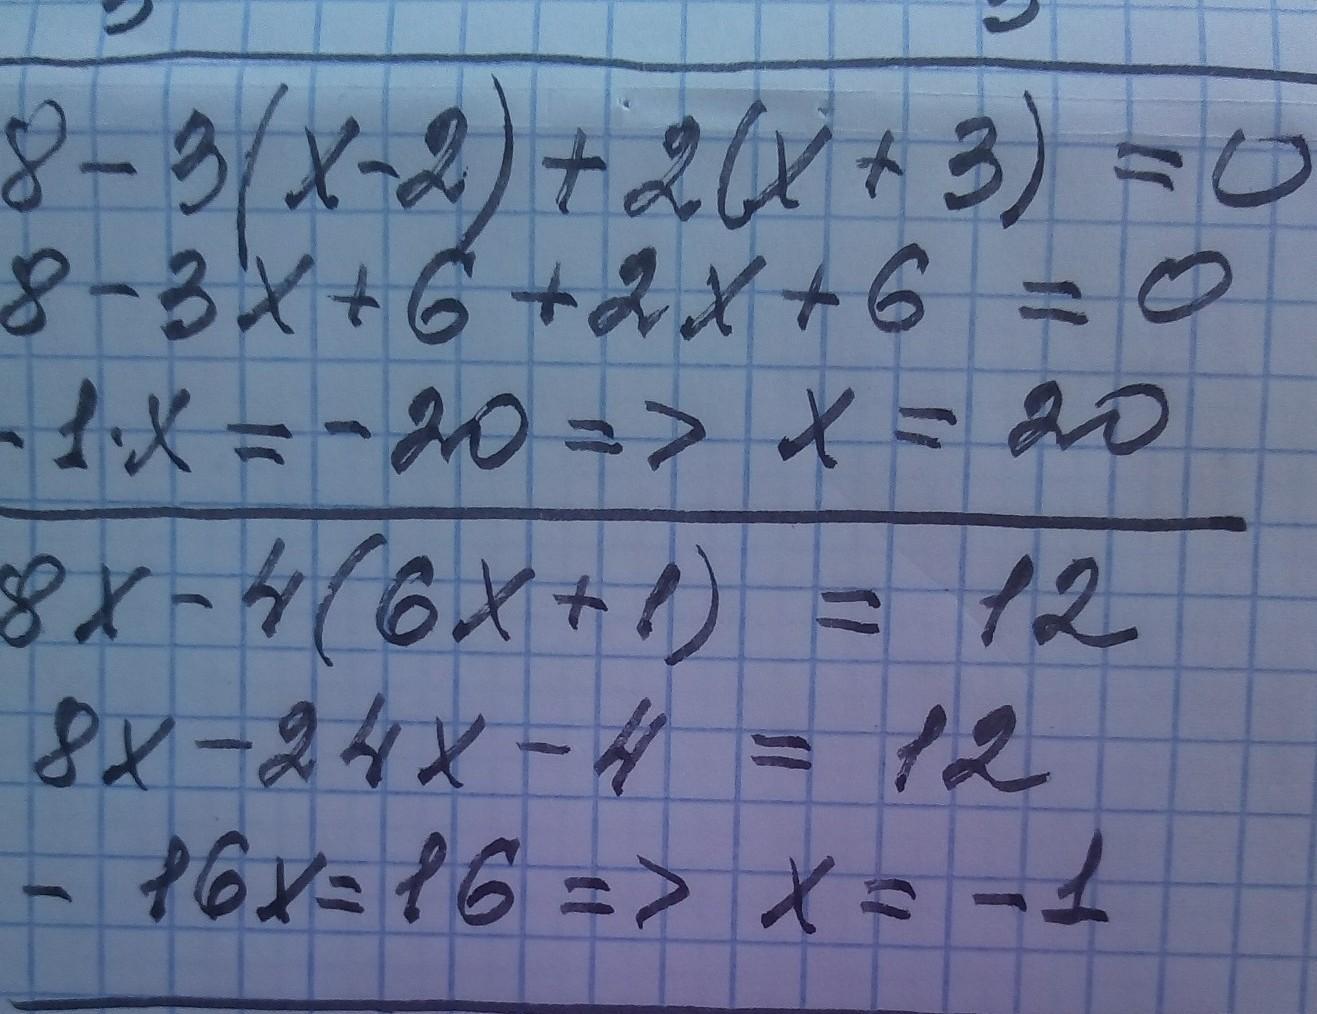 8 - 3(x-2) + 2(x + 3) = 0
8 - 3x + 6 + 2x + 6 = 0
- 1·x = - 20 => x = 20
8x - 4(6x + 1) = 12
8x - 24x - 4 = 12
- 16x = 16 => x = -1